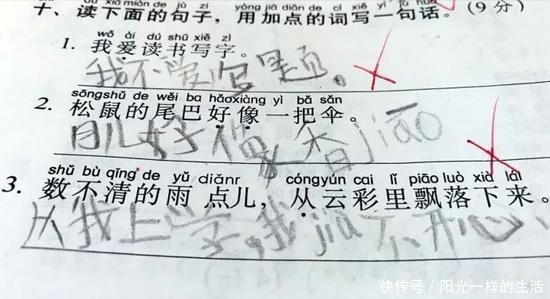 十、读下面的句子，用加点的词写一句话。(9分)
wǒ ài dú shū xiě zì
1. 我爱读书写字。
我不爱写题。
sōngshǔ de wěi ba hǎoxiàng yì bǎ sǎn
2. 松鼠的尾巴好像一把伞。
月儿好像香jiāo
shǔ bù qīng de yǔ diǎnr cóngyún cai lǐ piāo luò xià lái
3. 数不清的雨点儿，从云彩里飘落下来。
从我上学,我 不开心
快传号/阳光一样的生活